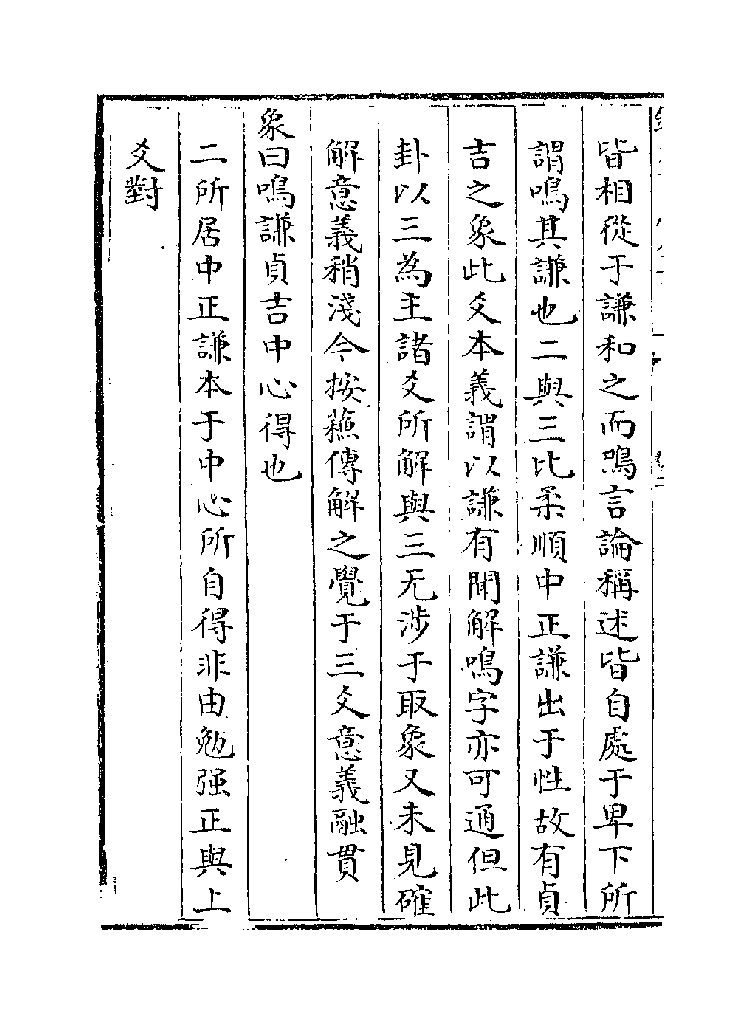 皆相從于謙和之而鳴言論稱述皆自處于卑下所
謂鳴其謙也二與三比柔順中正謙出于性故有貞
吉之象此爻本義謂以謙有聞解鳴字亦可通但此
卦以三為主諸爻所解與三无涉于取象又未見確
解意義稍淺今按蘓傳解之覺于三爻意義融貫
象曰鳴謙貞吉中心得也
二所居中正謙本于中心所自得非由勉强正與上
爻對